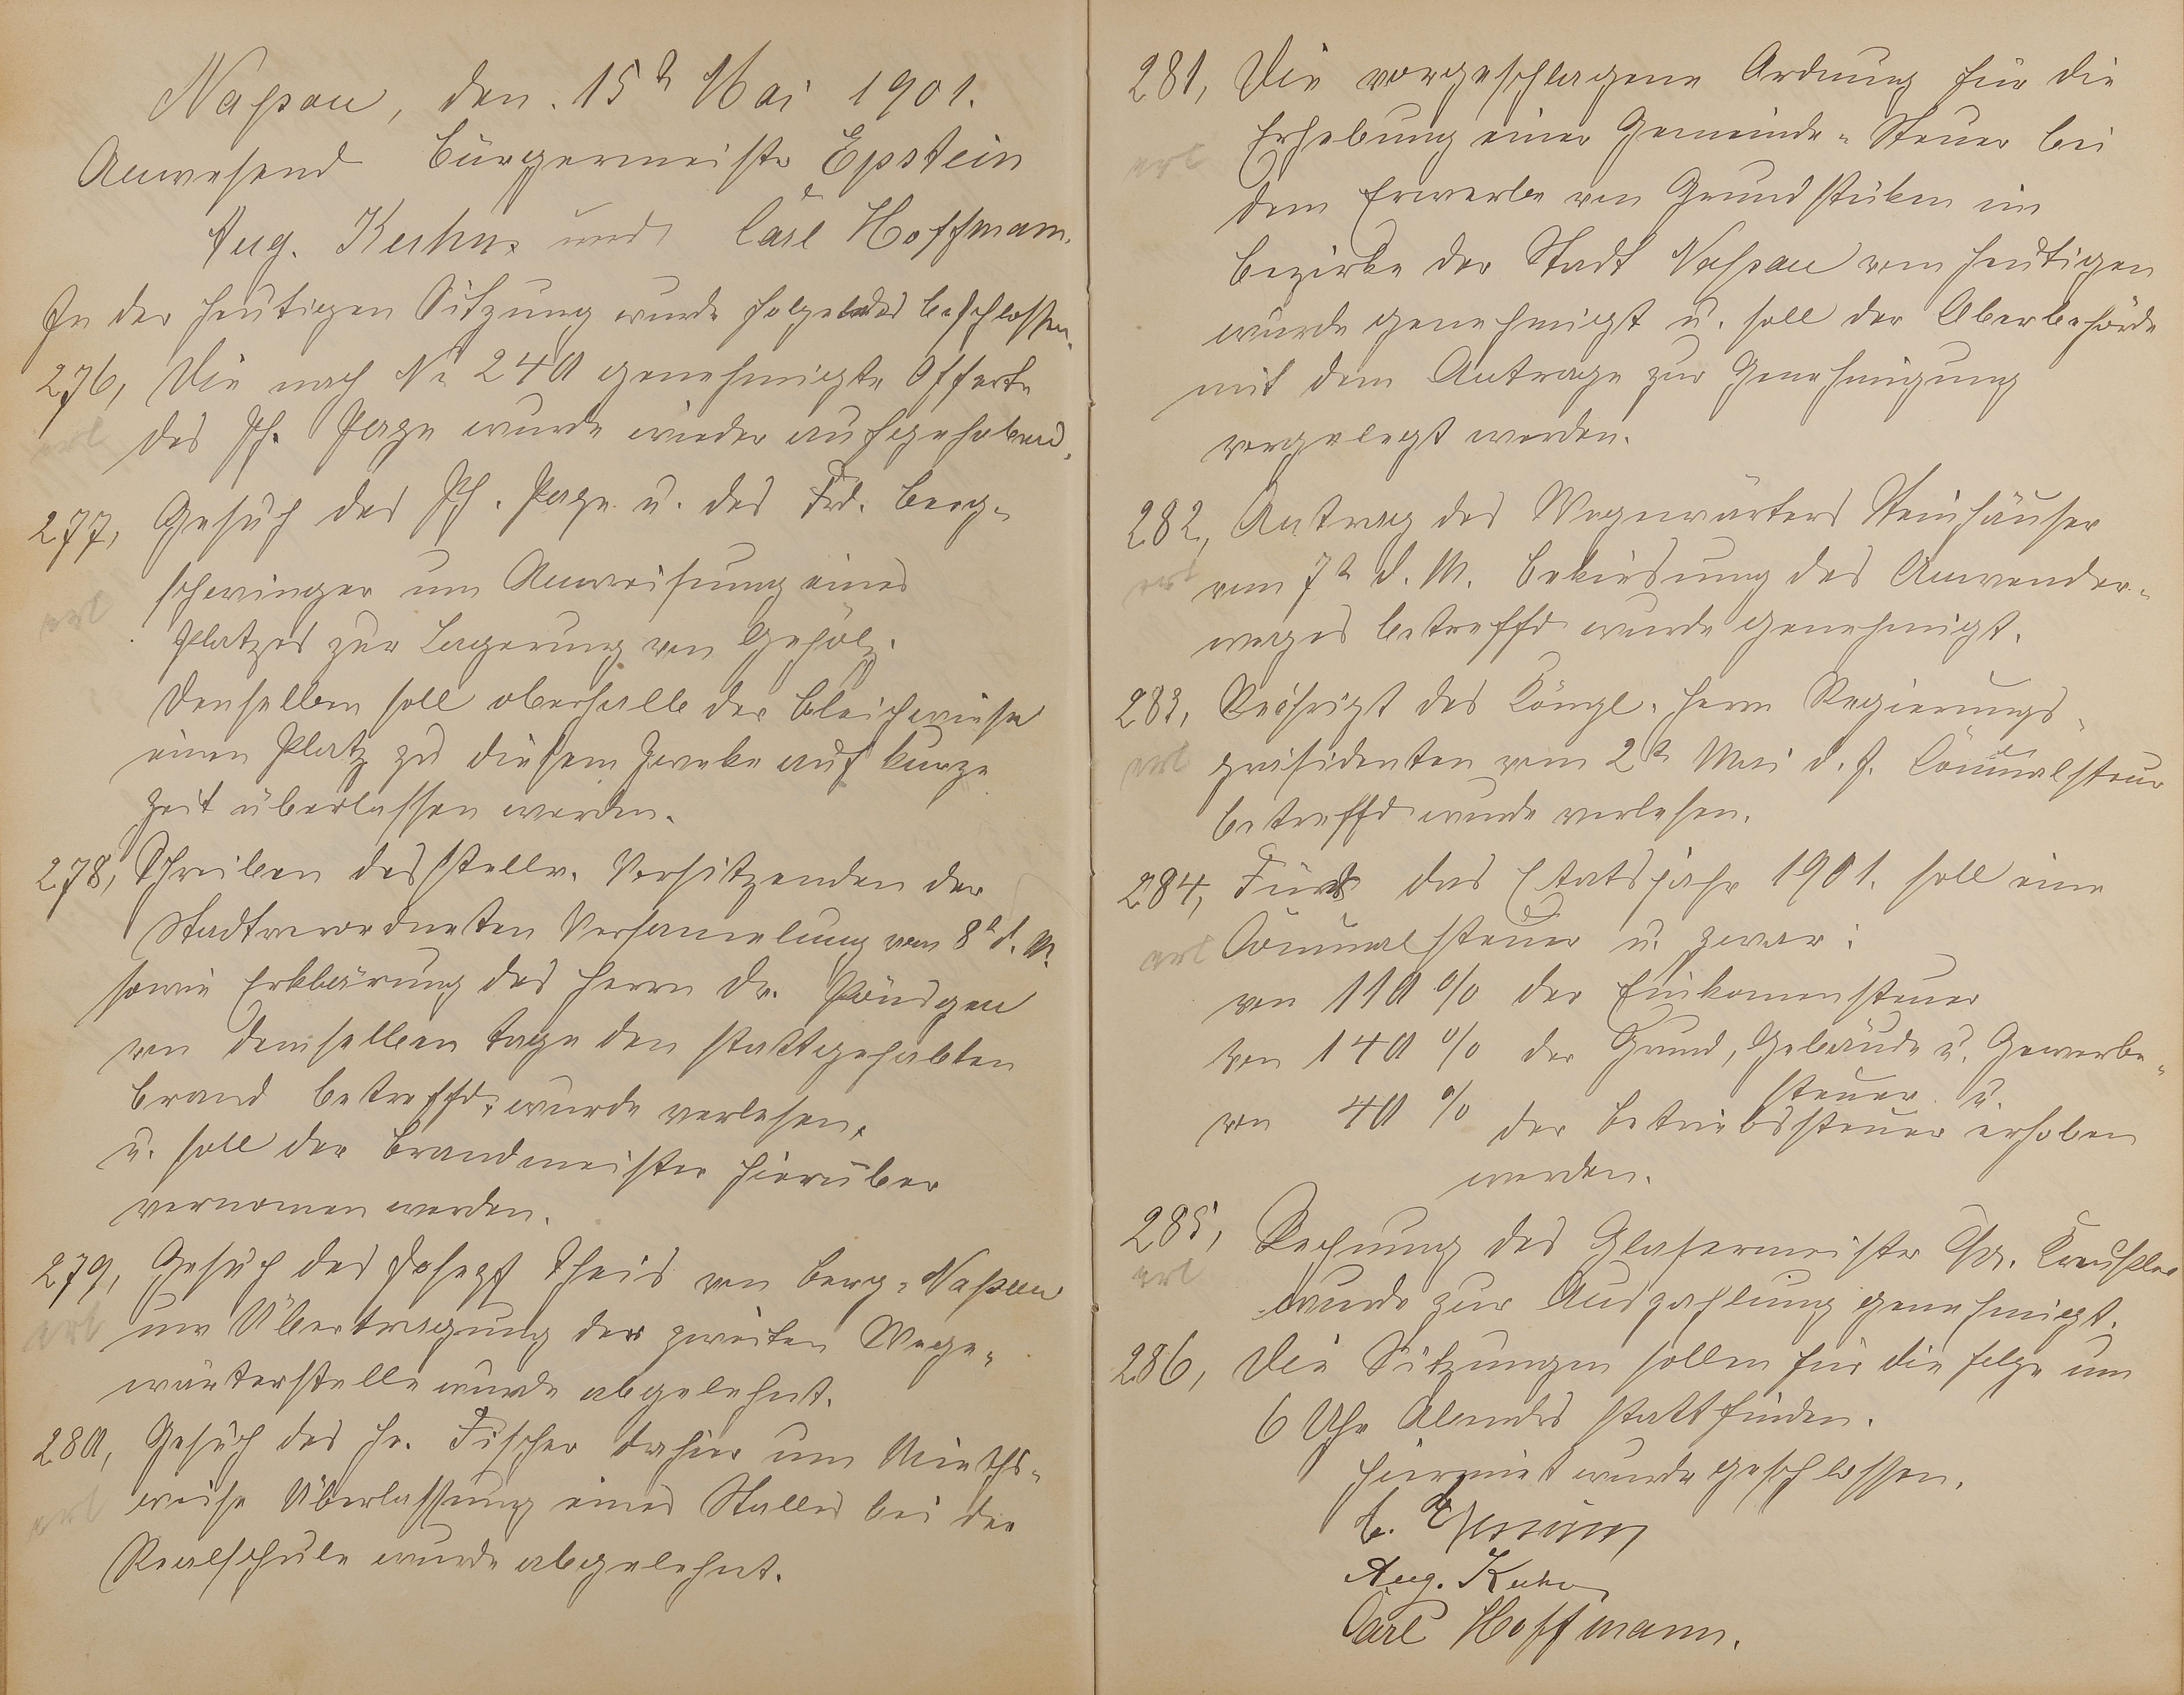 Nassau, den 15t Mai 1901.
Anwesend Bürgermeister Epstein
Aug. Kuhn und Carl Hoffmann.
In der heutigen Sitzung wurde folgendes beschlossen.
276, Die nach No 240 genehmigte Offerte
erl
des Ph. Page wurde wieder aufgehoben.
277, Gesuch des Ph. Page u. des Frd. Berg-
schwinger um Anweisung eines
erl
Platzes zur Lagerung von Gehölz.
Denselben soll oberhalb der Bleichwiese
einen Platz zu diesem Zwecke auf kurze
Zeit überlassen werden.
278, Schreiben des stellv. Vorsitzenden der
Stadtverordneten Versamlung vom 8t d. M.
sowie Erklärung des Herrn Dr. Pönsgen
von demselben Tage den stattgehabten
Brand betreffd. wurde verlesen,
u. soll der Brandmeister hierüber
vernomen werden.
279, Gesuch des Joseph Theis von Berg-Nassau
erl
um Übertragung der zweiten Wege-
wärterstelle wurde abgelehnt.
280, Gesuch des Hr. Fischer dahier um Mieths-
erl
weise Überlassung eines Stalles bei der
Realschule wurde abgelehnt.
281, Die vorgeschlagene Ordnung für die
Erhebung einer Gemeinde-Steuer bei
erl
dem Erwerbe von Grundstüken im
Bezirke der Stadt Nassau vom heutigen
wurde genehmigt u. soll der Oberbehörde
mit dem Antrage zur Genehmigung
vorgelegt werden.
282, Antrag des Wegewärters Steinhäuser
erl
vom 7t d. M. Bekiesung des Anwender-
weges betreffd wurde genehmigt.
283, Reskript des Köngl. Herrn Regierungs-
erl
präsidenten vom 2t Mai d. J. Comunalsteur
betreffd wurde verlesen.
284, Für das Etatsjahr 1901. soll eine
erl
Comunalsteuer u. zwar:
von 110 % der Einkomensteuer
von 140 % der Grund, Gebäude u. Gewerbe-
steuer u.
von 40 % der Betriebssteuer erhoben
werden.
285, Rechnung des Glasermeister Chr. Kreusler
erl
wurde zur Auszahlung genehmigt.
286, Die Sitzungen sollen für die Folge um
6 Uhr Abends stattfinden.
Hiermit wurde geschlossen.
Aug. Kuhn
Carl Hoffmann.